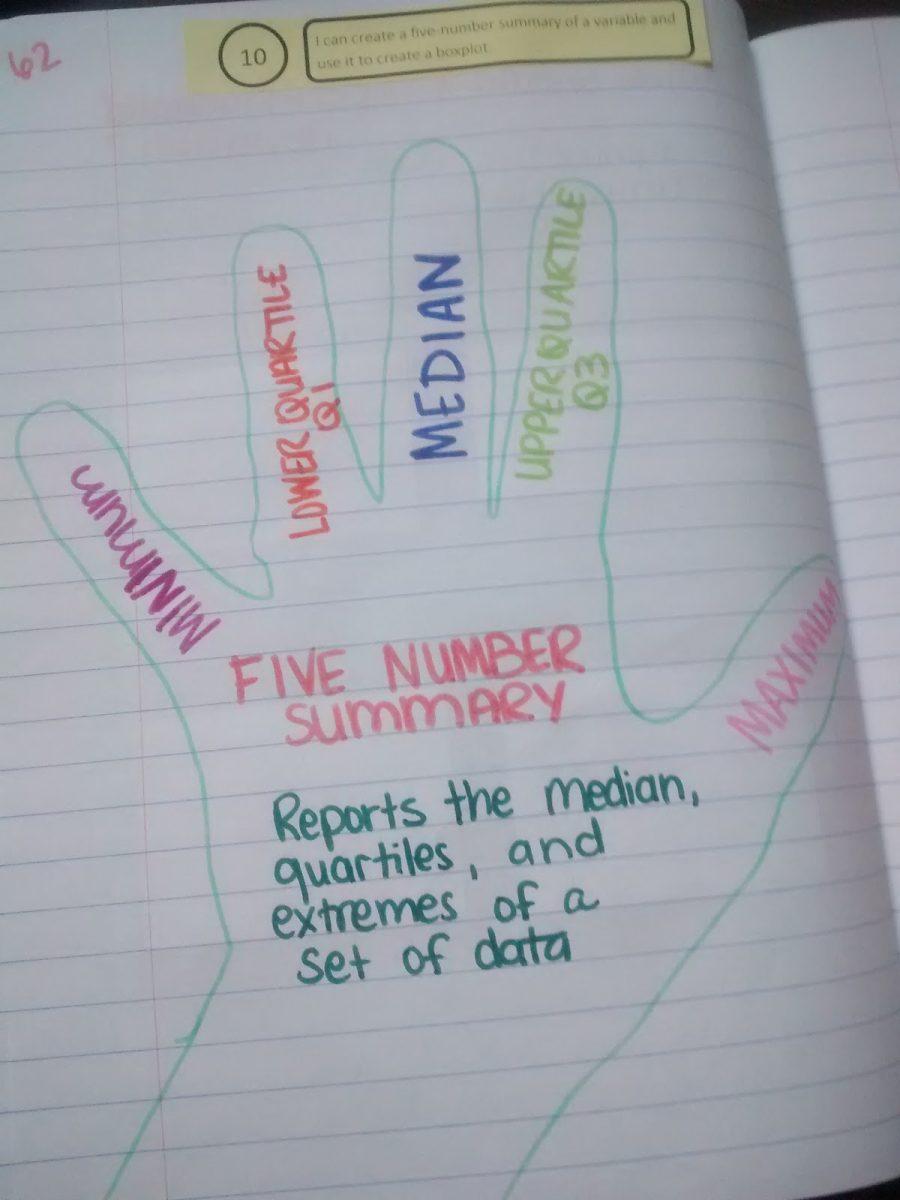 62
10
I can create a five-number summary of a variable and
use it to create a boxplot.
MINIMUM
LOWER QUARTILE
Q1
MEDIAN
UPPER QUARTILE
Q3
MAXIMUM
FIVE NUMBER
SUMMARY
Reports the median,
quartiles, and
extremes of a
set of data